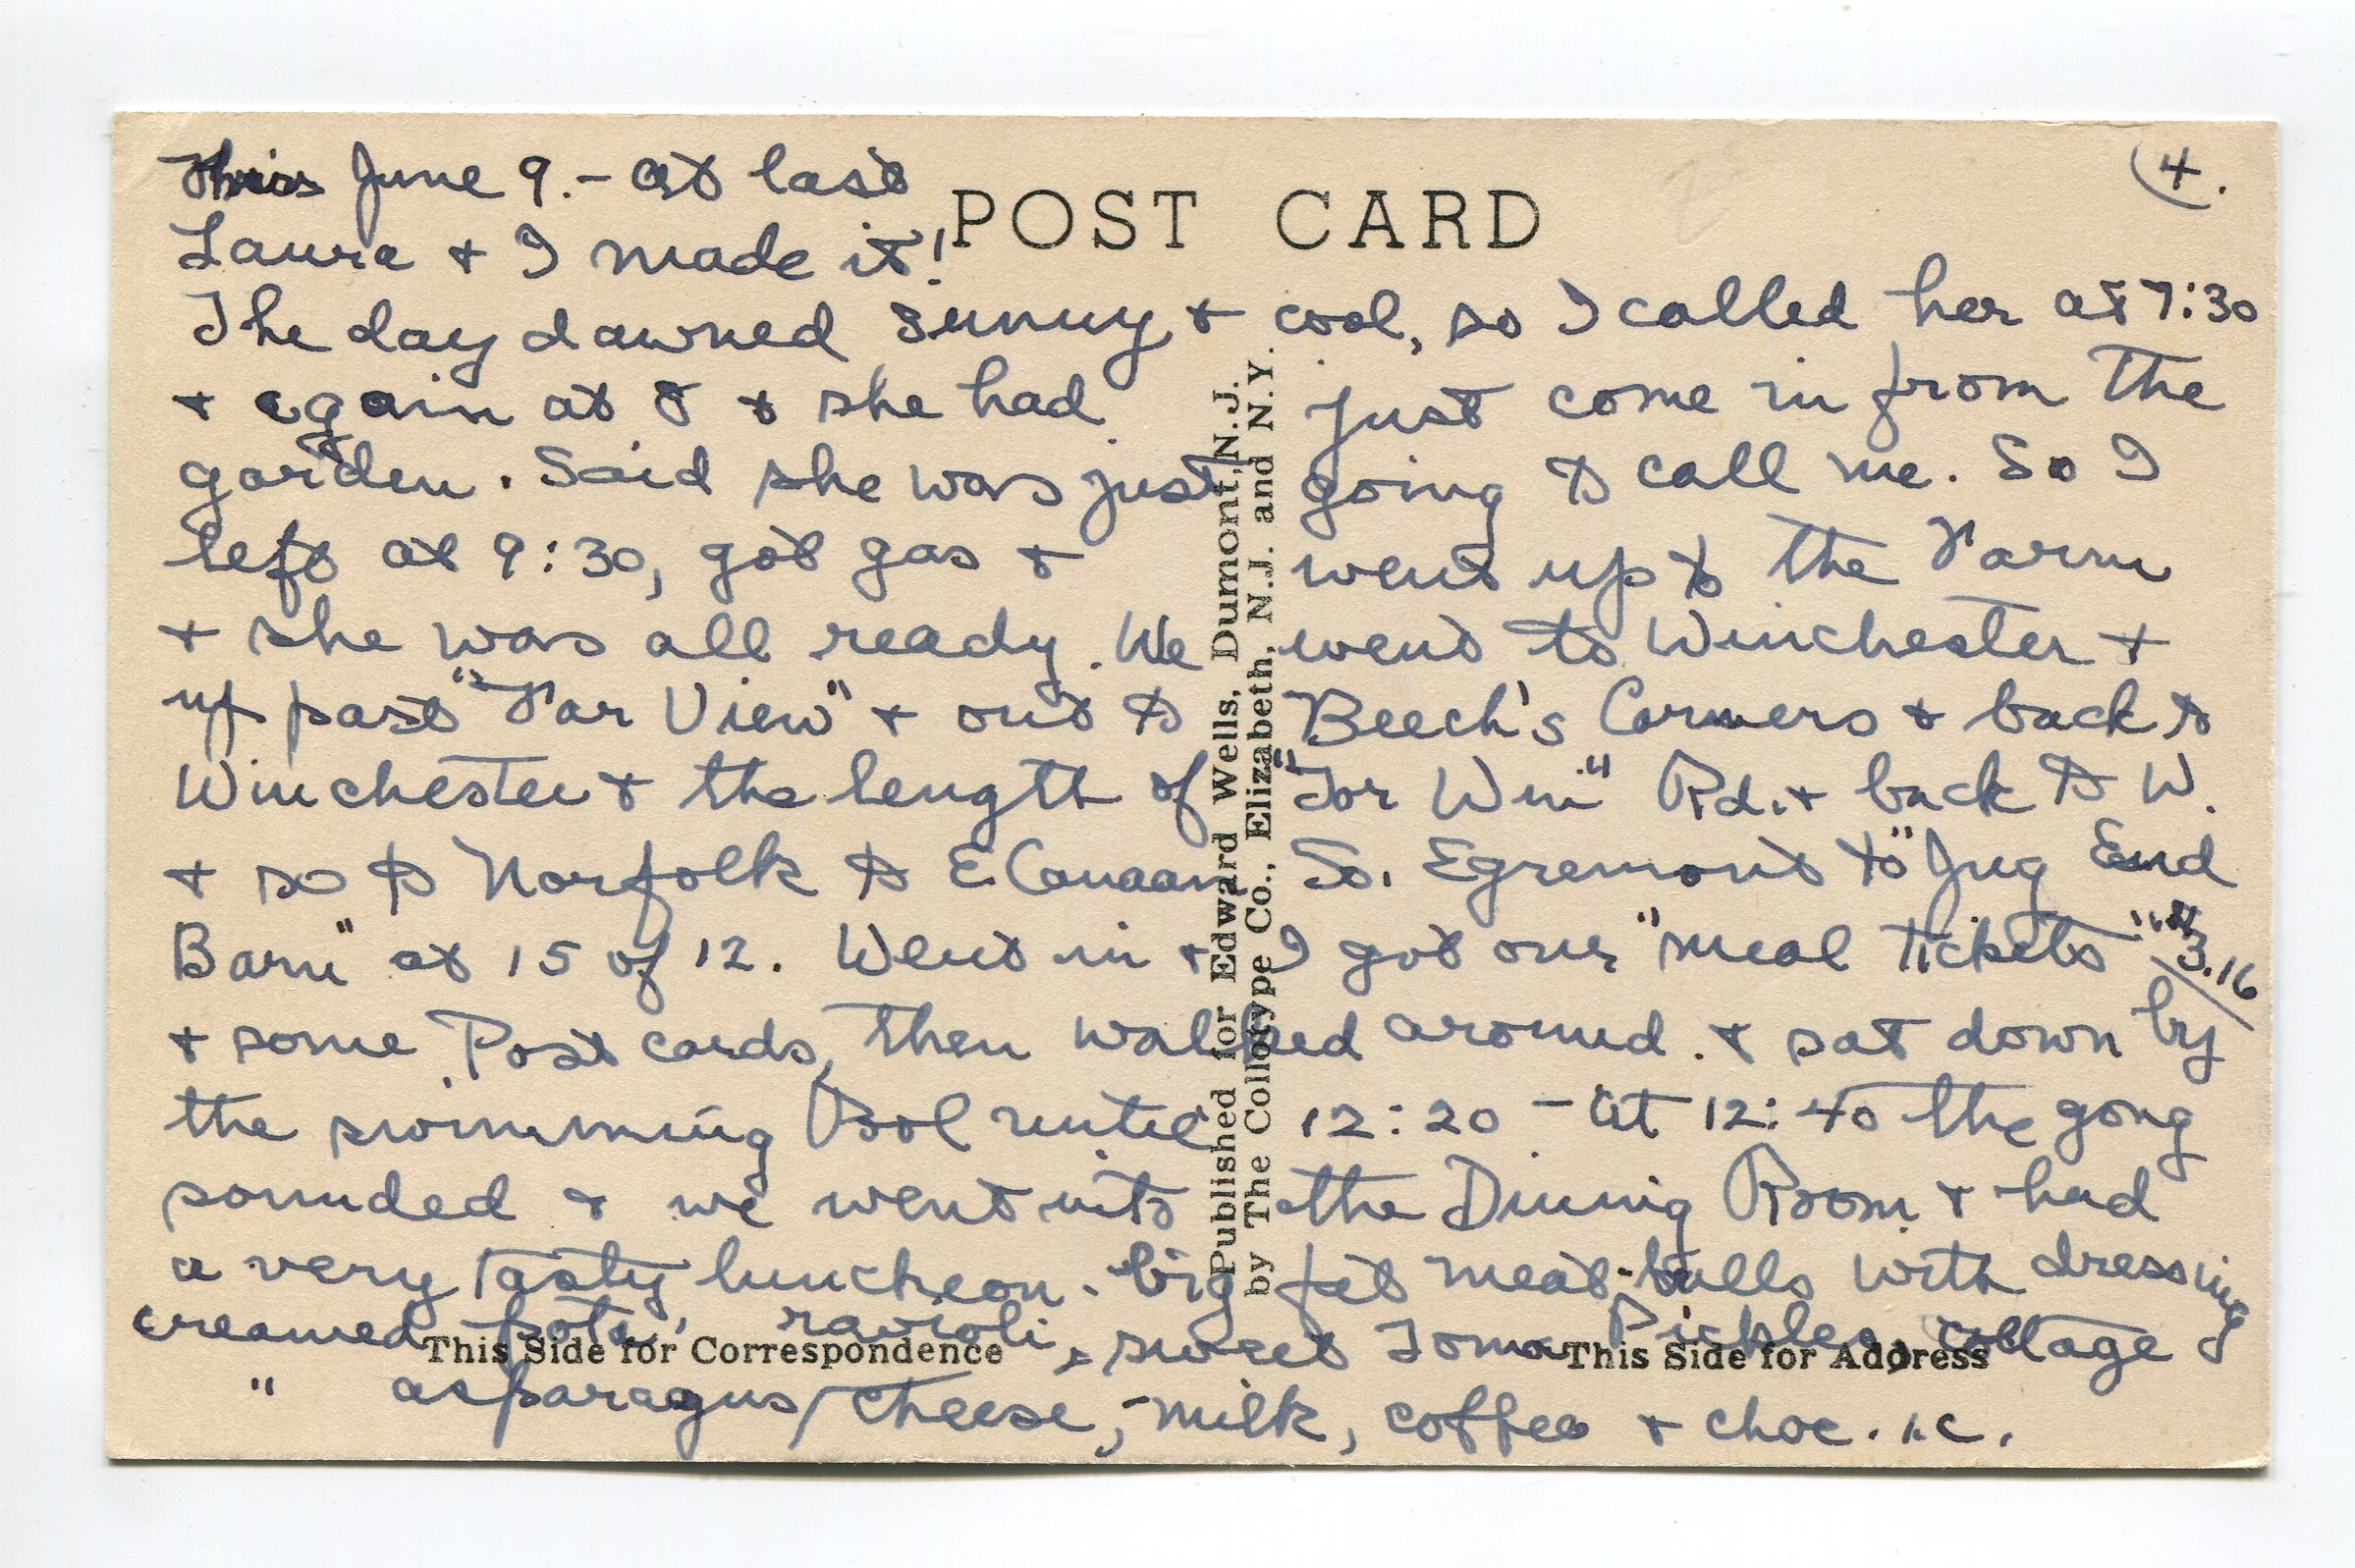 (4.
Thurs June 9. - at last
POST CARD
Laura + I made it!
The day dawned sunny + cool, so I called her at 7:30
+ again at 8 + she had just come in from the
garden. Said she was just going to call me. So I
left at 9:30, got gas + went up to the Farm
+ she was all ready. We went to Winchester +
up past "Far View" + out to Beech's Corners + back to
Winchester + the length of "Tor Win" Rd. + back to W.
+ so to Norfolk to E. Canaan So. Egremont to "Jug End
Barn" at 15 of 12. Went in + I got our "meal tickets" 3.16
+ some Post cards, then walked around. + sat down by
the swimming Pool until 12:20 - at 12:40 the gong
sounded + we went into the Dining Room + had
a very tasty luncheon. big fat meat-balls with dressing
creamed pots, ravioli, sweet Toma Pickles, cottage
" asparagus / cheese, milk, coffee + choc. i.c.
Published for Edward Wells, Dumont, N.J.
by The Collotype Co., Elizabeth, N.J. and N.Y.
This Side for Correspondence
This Side for Address